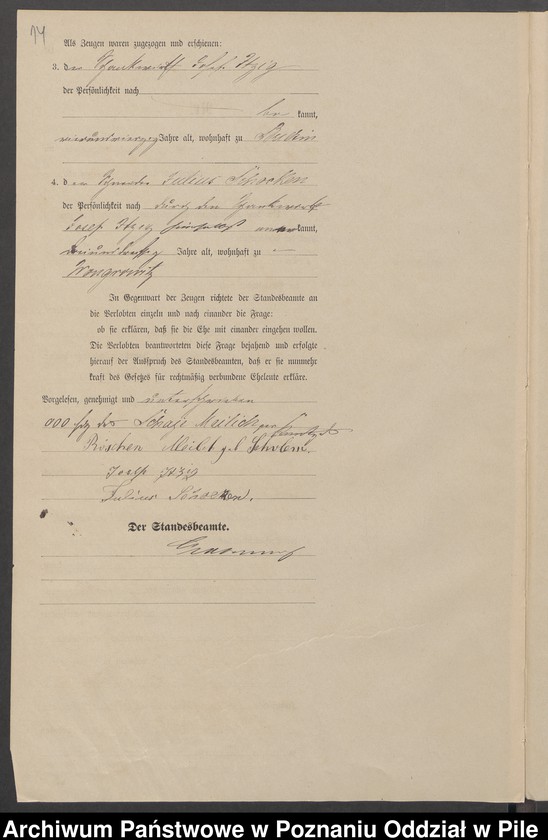 14
Als Zeugen waren zugezogen und erschienen:
3. der Schankwirth Josef Itzig
der Persönlichkeit nach
be kannt,
vierundvierzig Jahre alt, wohnhaft zu Budsin
4. d en Julius Schocken
der Persönlichkeit nach durch den Schankwirth
Josef Itzig aner kannt,
Jahre alt, wohnhaft zu
Wongrowitz
In Gegenwart der Zeugen richtete der Standesbeamte an
die Verlobten einzeln und nach einander die Frage:
ob sie erklären, daß sie die Ehe mit einander eingehen wollen.
Die Verlobten beantworteten diese Frage bejahend und erfolgte
hierauf der Ausspruch des Standesbeamten, daß er sie nunmehr
kraft des Gesetzes für rechtmäßig verbundene Eheleute erkläre.
Vorgelesen, genehmigt und unterschrieben
000 Hdz des Schaje Meilich
Röschen Meilich geb
Josef Itzig
Julius Schocken.
Der Standesbeamte.
Archiwum Państwowe w Poznaniu Oddział w Pile